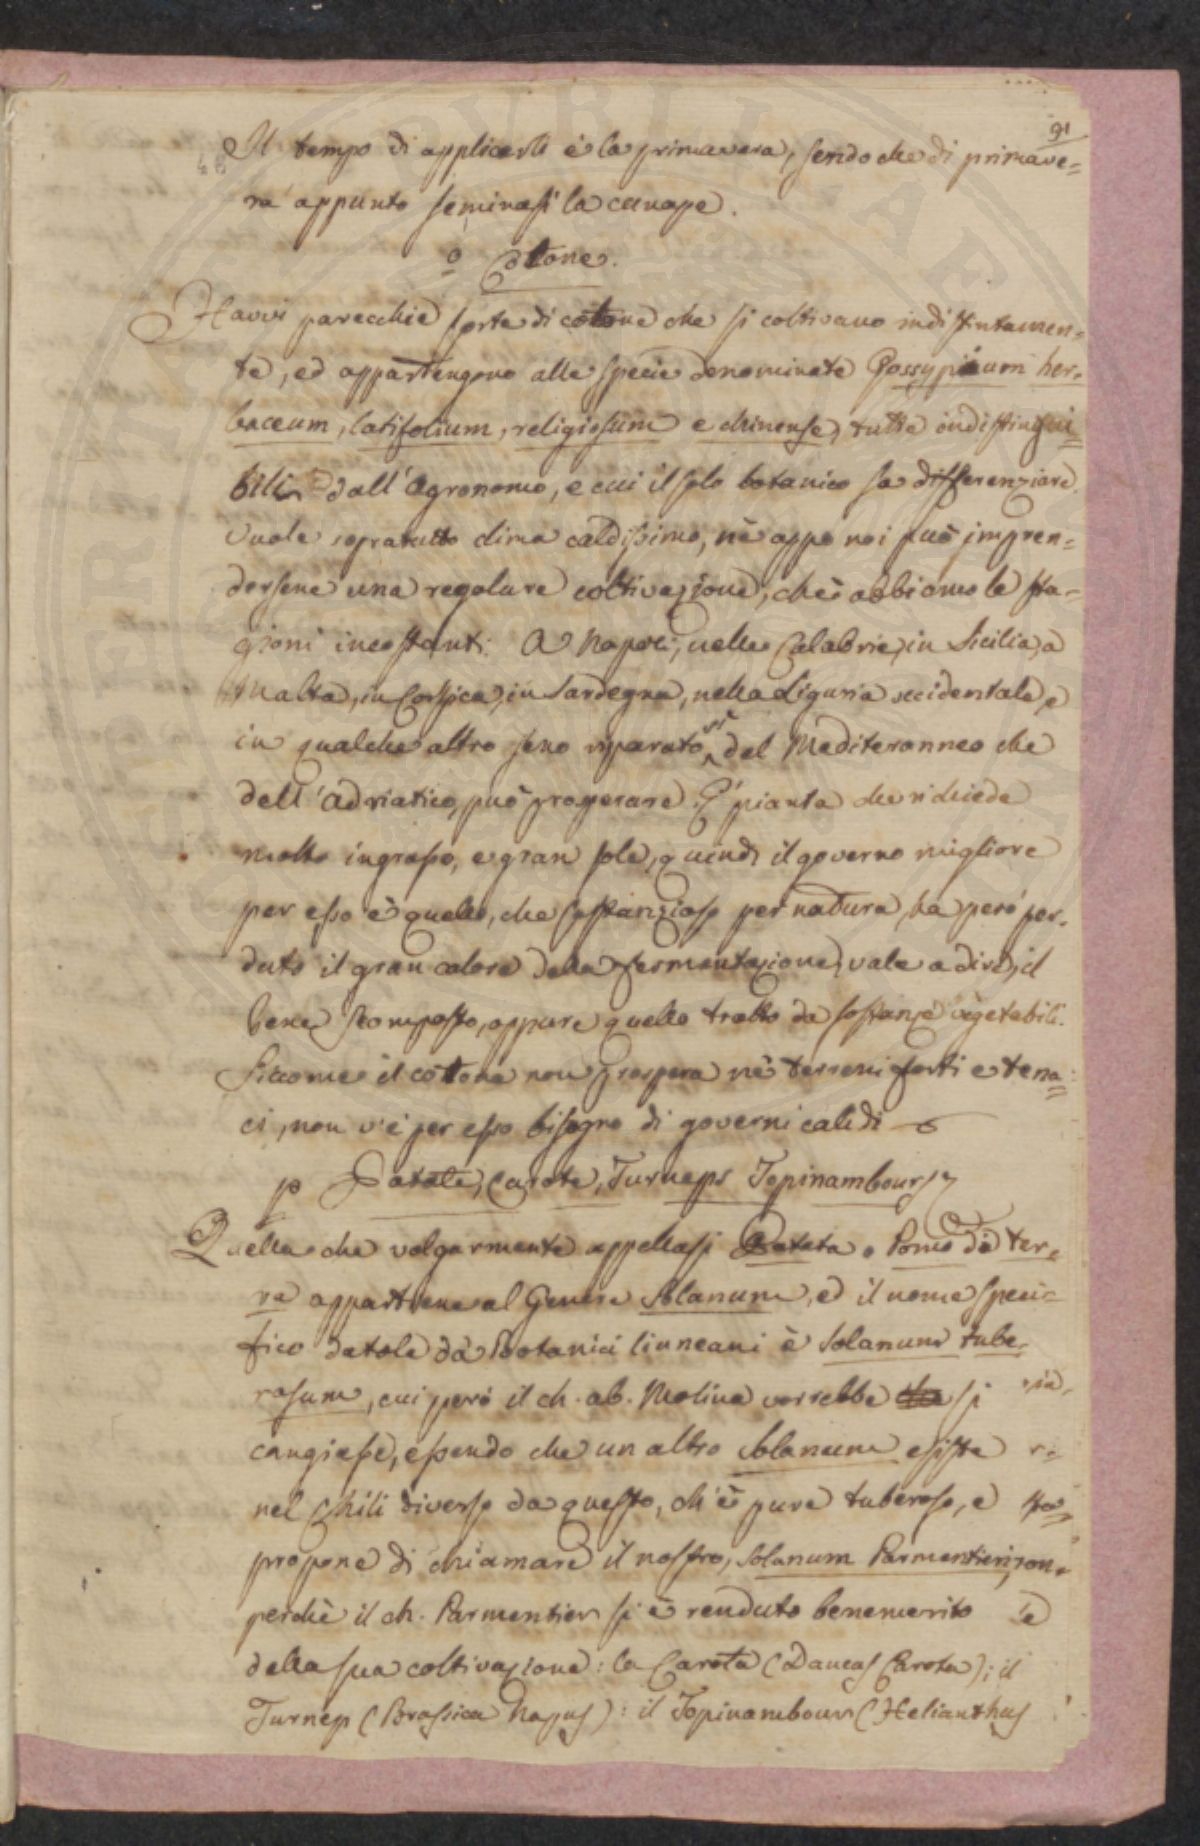 91
Il tempo di applicarli è la primavera, sendo che di primave=
ra appunto seminasi la canape.
o Cotone.
Havvi parecchie sorte di cotone che si coltivano indistintamen=
te, ed appartengono alle specie denominate Gossypium her=
baceum, latifolium, religiosum e chinense, tutte indistingui=
bili dall'Agronomo, e cui il solo botanico sa differenziare.
Vuole sopratutto clima caldissimo, nè appo noi può impren=
dersene una regolare coltivazione, chè abbiamo le sta=
gioni incostanti. A Napoli, nelle Calabrie, in Sicilia, a
Malta, in Corsica, in Sardegna, nella Liguria occidentale, e
in qualche altro seno riparato sì del Mediteranneo che
dell'Adriatico, può prosperare. E' pianta che richiede
molto ingrasso, e gran sole, quindi il governo migliore
per esso è quello, che sostanzioso per natura, ha però per=
duto il gran calore della fermentazione, vale a dire, il
bene scomposto, oppure quello tratto da sostanze vegetabili.
Siccome il cotone non prospera nè terreni forti e tena=
ci, non v'è per esso bisogno di governi calidi
p Patate, Carote, Turneps Topinambours
Quella che volgarmente appellasi Patata o Pomo di ter=
ra appartiene al Genere Solanum, ed il nome speci=
fico datole dà Botanici linneani è Solanum tube=
rosum, cui però il ch. ab. Molina vorrebbe si
cangiasse, essendo che un altro Solanum esiste
nel Chilì diverso da questo, ch'è pure tuberoso, e
propone di chiamare il nostro, Solanum Parmentieri,
perchè il ch. Parmentier si è renduto benemerito
della sua coltivazione: la Carota (Daucus Carota); il
Turnep (Brassica Napus): il Topinambour (Helianthus